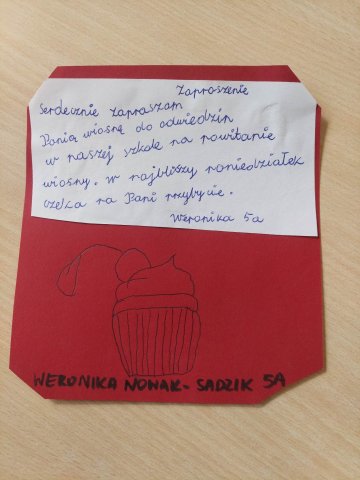 Zaproszenie
Serdecznie zapraszam
Panią wiosnę do odwiedzin
w naszej szkole na powitanie
wiosny. W najbliższy poniedziałek
czeka na Pani przybycie.
Weronika 5a
WERONIKA NOWAK - SADZIK 5A